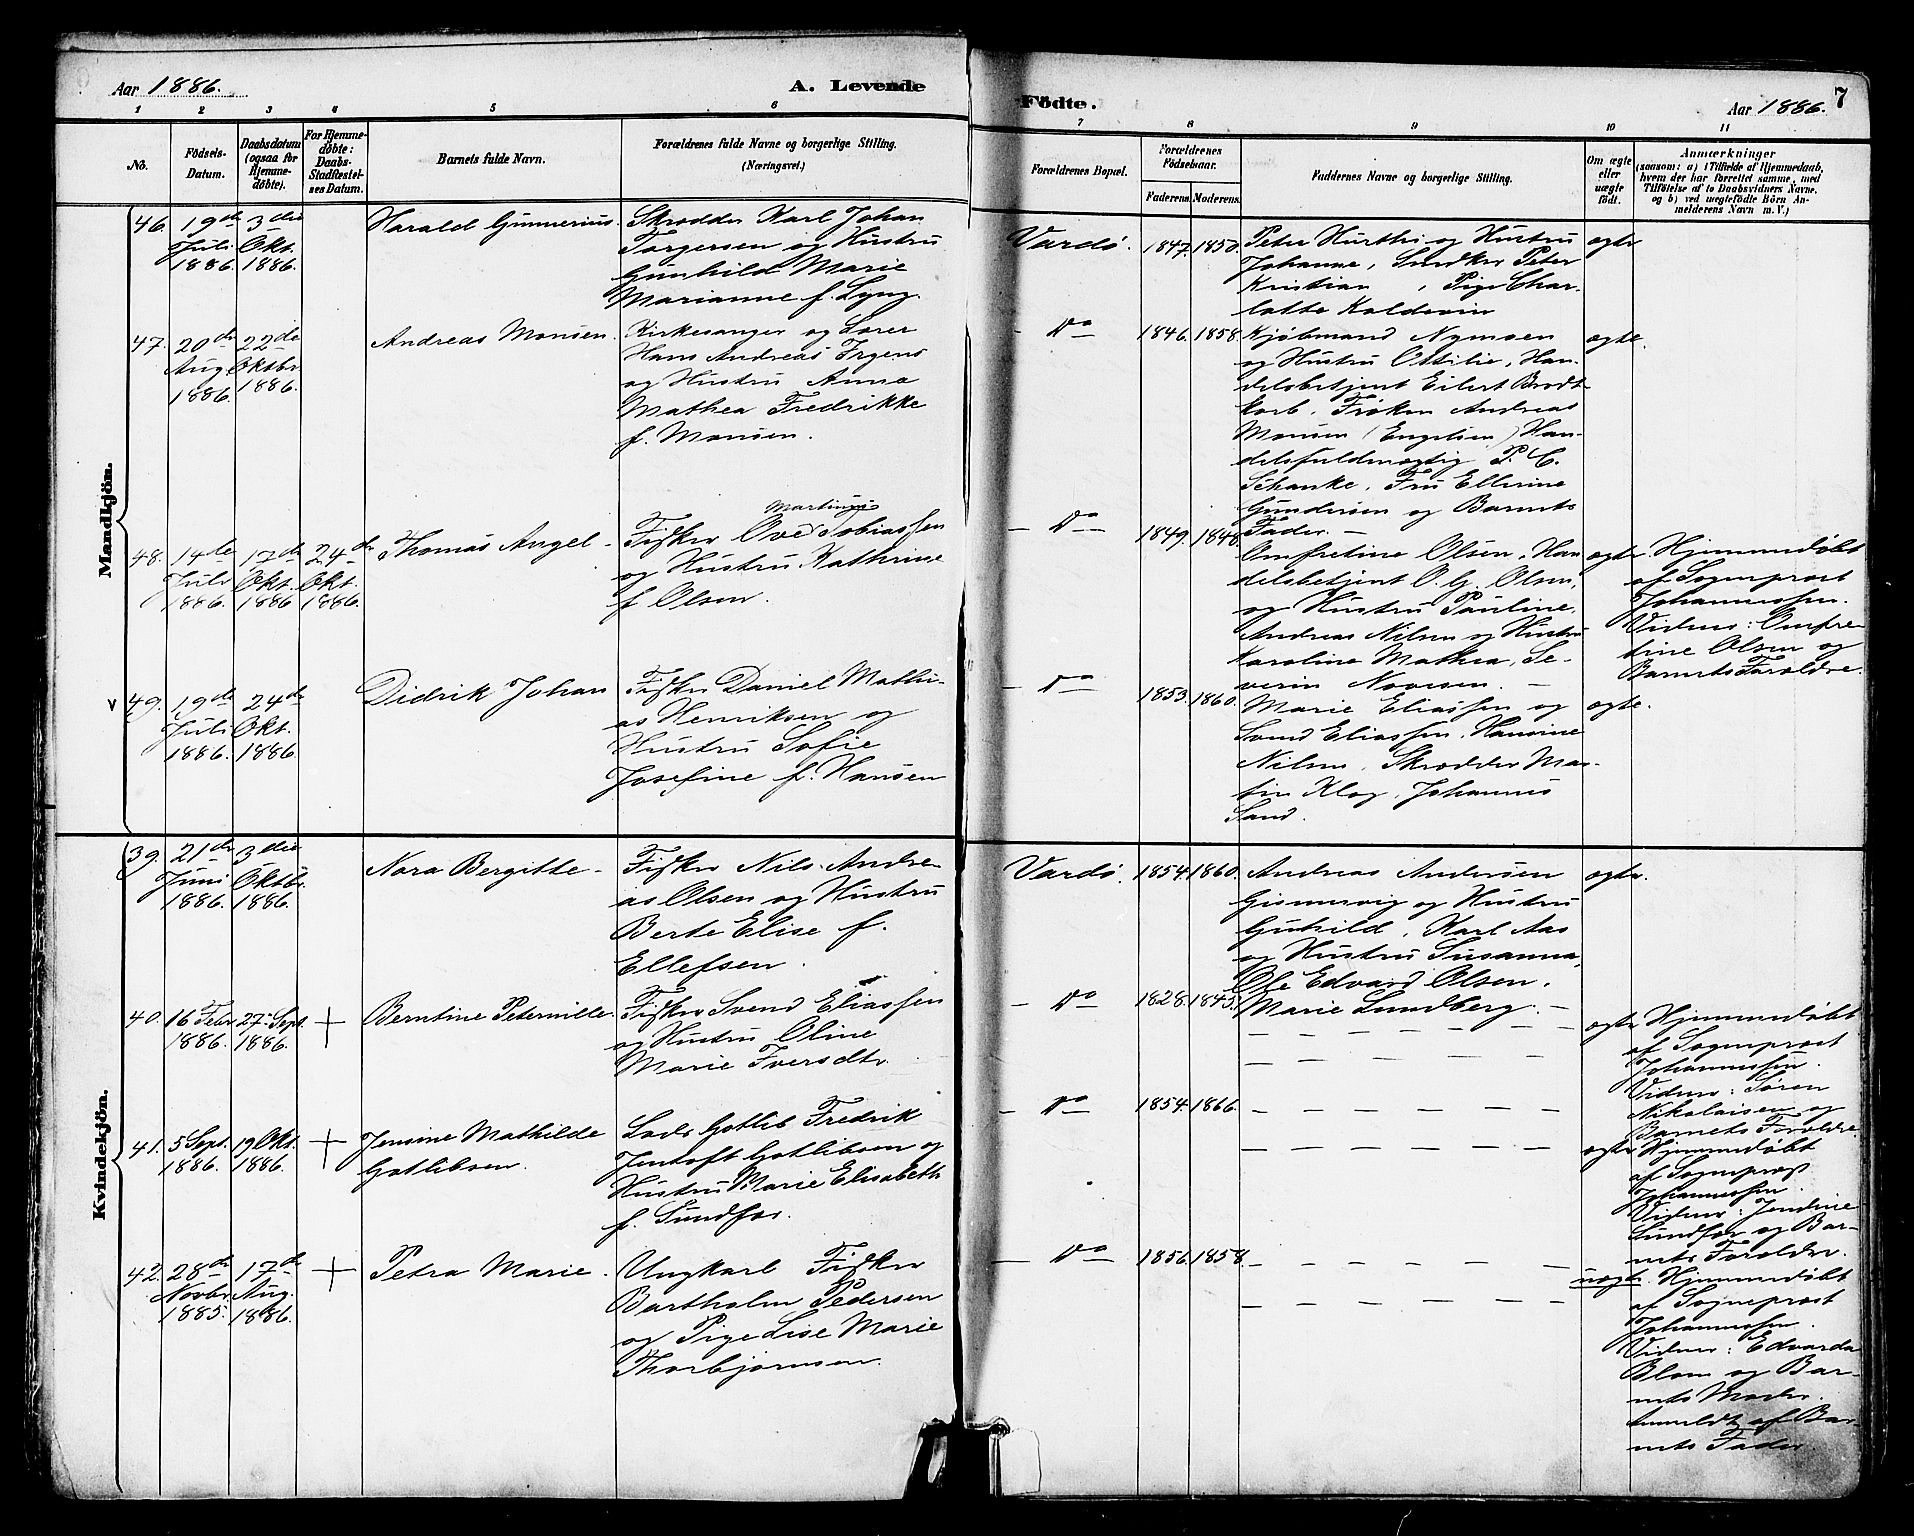 Aar 1886.
A. Levende
Fødte.
Aar 1886.
7
1 2 3 4 5 6 7 8 9 10 11
No.
Födsels-
Datum.
Daabsdatum
(ogsaa for
Hjemme-
döbte).
For Hjemme-
döbte:
Daabs-
Stadfæstel-
ses Datum.
Barnets fulde Navn.
Forældrenes fulde Navne og borgerlige Stilling.
(Næringsvei.)
Forældrenes Bopæl.
Forældrenes
Födselsaar.
Faderens. Moderens.
Faddernes Navne og borgerlige Stilling.
Om ægte
eller
uægte
født.
Anmærkninger
(saasom: a) i Tilfælde af Hjemmedaab,
hvem der har forrettet samme, med
Tilföielse af to Daabsvidners Navne,
og b) ved uægtefødte Börn An-
melderens Navn m. V.)
Mandkjön.
46.
19de
Juli
1886.
3die
Okt.
1886.
Harald Gunnerius.
Skrædder Karl Johan
Torgersen og Hustru
Gunhild Marie
Marianne f. Lyng.
Vardø.
1847. 1850.
Peter og Hustru
Johanne, Snedker Peter
Kristian , Pige Char-
lotte Koldevin
ægte
47.
20de
Aug.
1886.
22de
Oktbr.
1886.
Andreas Monsen.
Kirkesanger og Lærer
Hans Andreas Irgens
og Hustru Anna
Mathea Fredrikke
f. Monsen.
— Do
1846. 1858.
Kjøbmand Nymoen
og Hustru Ottilie, Han-
delsbetjent Eilert Brodt-
korb, Frøken Andreas
Monsen (Engelsen) Han-
delsfuldmægtig P. C.
Schanke, Fru Ellerine
Gundersen og Barnets
Fader. —
ægte.
48.
14de
Juli
1886.
17de
Okt.
1886
24de
Okt.
1886.
Thomas Angel —
Fisker Ove Martinus Tobiassen
og Hustru Kathrine
f. Olsen.
— Do —
1849. 1848.
Omfretine Olsen, Han-
delsbetjent O. G. Olsen,
og Hustru Pauline,
Andreas Nilsen og Hustru
Karoline Mathea, Se-
verin . —
ægte.
Hjemmedøbt
af Sogneprest
Johannessen.
Vidner: Omfre-
tine Olsen og
Barnets Forældre.
v 49.
19de
Juli
1886.
24de
Okt.
1886
Didrik Johan
Fisker Daniel Mathi-
as Henriksen og
Hustru Sofie
Josefine f. Hansen
— Do —
1853. 1860.
Marie Eliassen og
Svend Eliassen, Hansine
Nilsen, Skrædder Mar-
tin Klog, Johannes
Sand.
ægte.
Kvindekjön.
39.
21de
Juni
1886.
3die
Oktbr.
1886.
Nora Bergitte —
Fisker Nils Andre-
as Olsen og Hustru
Berte Elise f.
Ellefsen.
Vardø.
1854. 1860.
Andreas Andersen
Gismervig og Hustru
Gunhild, Karl Aas
og Hustru Susanna,
Ole Edvard Olsen,
Marie Lundberg. —
ægte.
40.
16 Febr
1886.
27. Sept.
1886.
+
Berntine Petermille.
Fisker Svend Eliassen
og Hustru Oline
Marie Iversdtr
— Do —
1828. 1843.
ægte
Hjemmedøbt
af Sogneprest
Johannessen.
Vidner: Søren
Nikolaisen og
Barnets Forældre.
41.
5 Sept.
1886.
19 Okt.
1886.
+
Jensine Mathilde
Gotliebsen.
Lods Gotlib Fredrik
Jentoft Gotliebsen og
Hustru Marie Elisabeth
f. Sundfør.
— Do —
1854. 1866.
ægte
Hjemmedøbt
af Sogneprest
Johannessen.
Vidner: Jendine
Sundfør og Bar-
nets Forældre.
42.
28de
Novbr.
1885.
17de
Aug.
1886.
+
Petra Marie.
Ungkarl Fisker
Bartholm Pedersen
og Pige Lise Marie
Thorbjørnsen.
— Do —
1856. 1858.
uægte.
Hjemmedøbt
af Sogneprest
Johannessen.
Vidner: Edvarda
Blom og Bar-
nets Moder.
Anmeldt af Bar-
nets Fader.